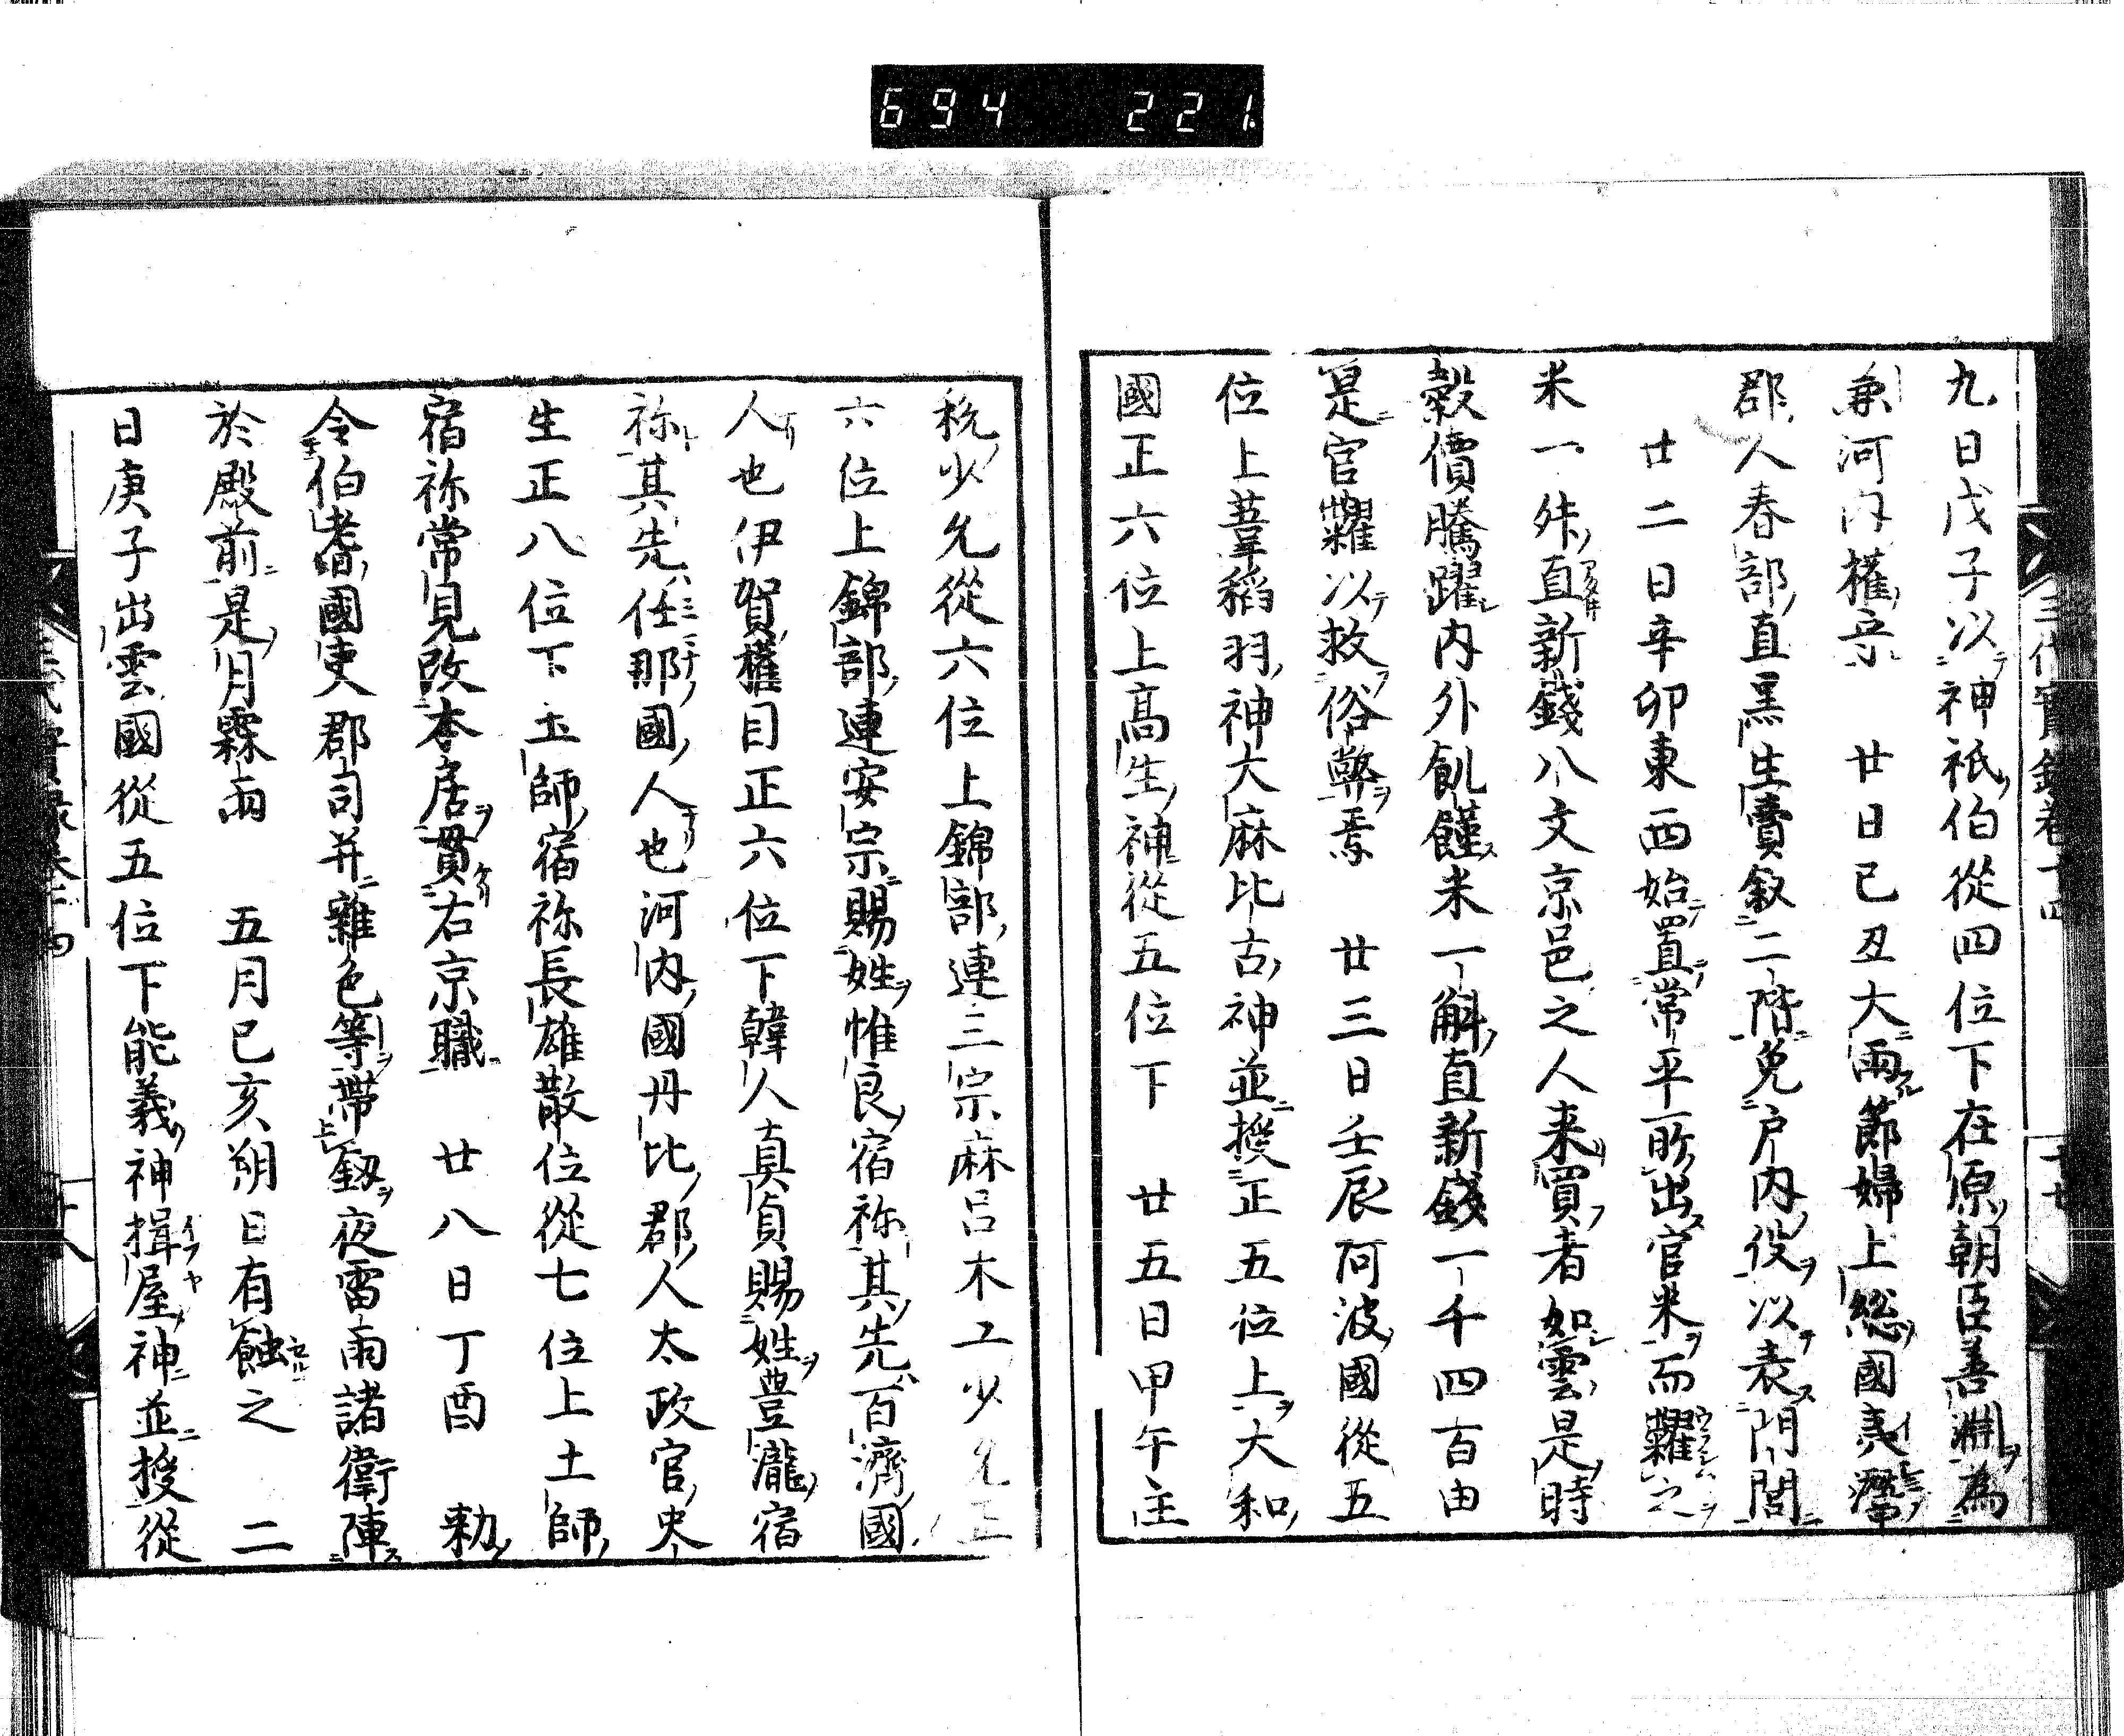 694 221
九日戊子以神祇伯從四位下在原朝臣善淵為
兼河内權守 廿日己丑大雨節婦上総國夷灊
郡人春部直黒生賣叙二階免戸内役以表門閭
廿二日辛卯東西始置常平所出官米而糶之
米一升直新錢八文京邑之人来買者如雲是時
穀價騰躍内外飢饉米一斛直新錢一千四百由
是官糶以救俗弊焉 廿三日壬辰阿波國從五
位上葦稻羽神大麻比古神並授正五位上大和
國正六位上高生神從五位下 廿五日甲午主
税少允從六位上錦部連三宗麻呂木工少允正
六位上錦部連安宗賜姓惟良宿祢其先百濟國
人也伊賀權目正六位下韓人真貞賜姓豊瀧宿
祢其先任那國人也河内國丹比郡人太政官史
生正八位下土師宿祢長雄散位從七位上土師
宿祢常見改本居貫右京職 廿八日丁酉 勅
令伯耆國吏郡司并雜色等帶釼夜雷雨諸衛陣
於殿前是月霖雨 五月己亥朔日有蝕之 二
日庚子出雲國從五位下能義神揖屋神並授從